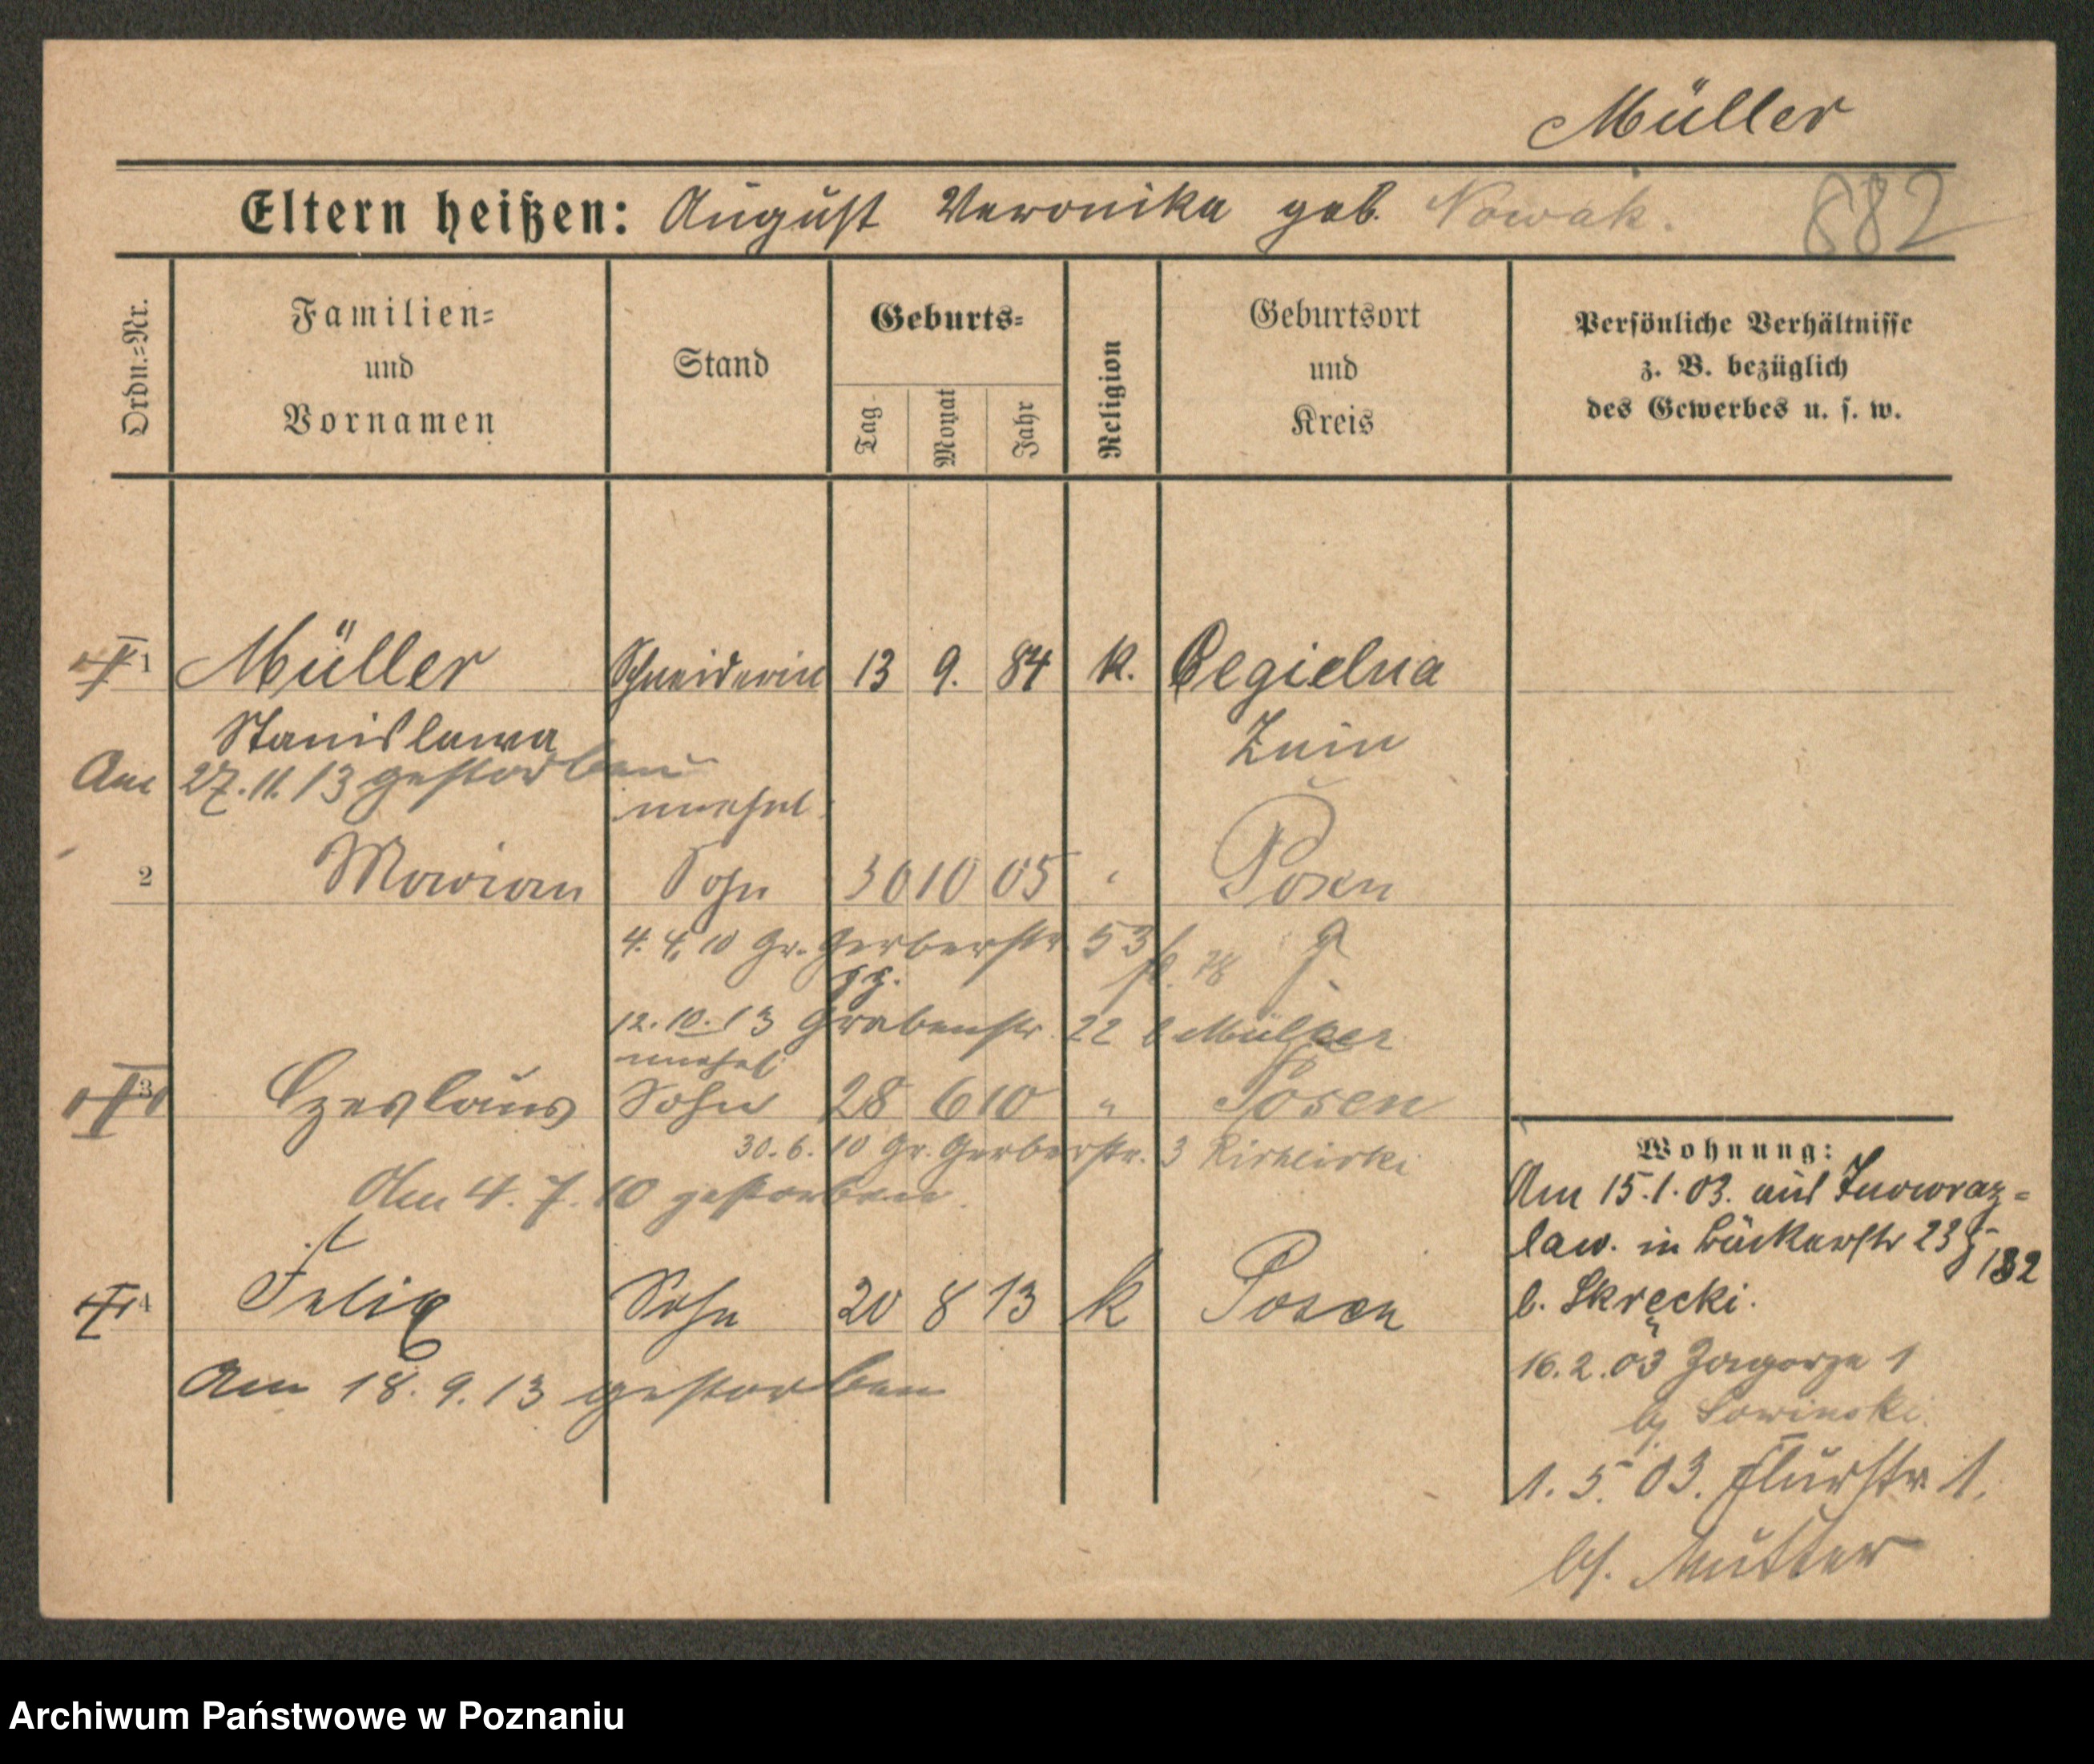 Müller
Eltern heißen: August Veronika geb. Nowak. 882
Ordn.=Nr.
Familien=
und
Vornamen
Stand
Geburts=
Tag
Monat
Jahr
Religion
Geburtsort
und
Kreis
Persönliche Verhältnisse
z. B. bezüglich
des Gewerbes u. s. w.
1 Müller Schneiderin 13 9. 84 k. Cegielnia
Stanislawa Znin
Am 27.11.13 gestorben
unehel.
2 Marian Sohn 30 10 05 Posen
4. 4. 10 Gr. Gerberstr. 53
12.10.13 Grabenstr. 22 b Müller
unehel
3 Czeslaus Sohn 28 6 10 " Posen
30.6.10 Gr. Gerberstr. 3
Am 4. 7. 10 gestorben.
4 Felix Sohn 20 8 13 k Posen
Am 18. 9. 13 gestorben
Wohnung:
Am 15.1.03. aus Inowraz=
law. in Bäckerstr 23 182
b. Skręcki.
16.2.03 Zagorze 1
bj Lowinski.
1. 5. 03. Flurstr. 1.
bj. Mutter
Archiwum Państwowe w Poznaniu